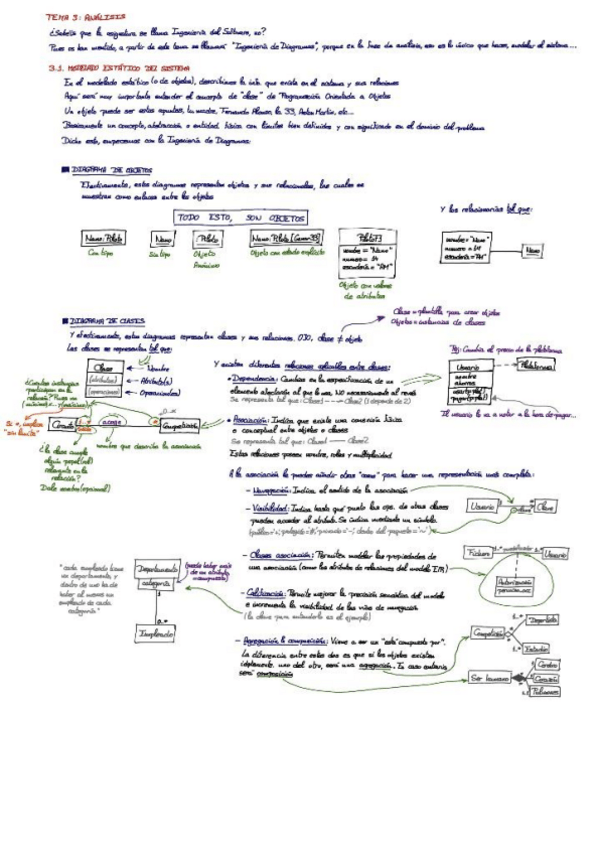 TEMA 3: ANÁLISIS
¿Sabéis que la asignatura se llama Ingeniería del Software, no?
Pues os han mentido, a partir de este tema se llamará "Ingeniería de Diagramas", porque en la fase de análisis, eso es lo único que haces, modelar el sistema...
3.1. MODELADO ESTÁTICO DEL SISTEMA
En el modelado estático (o de objetos), describimos la info. que existe en el sistema y sus relaciones
Aquí será muy importante entender el concepto de "clase" de Programación Orientada a Objetos
Un objeto puede ser estos apuntes, tu madre, Fernando Alonso, la 33, Aston Martin, etc...
Básicamente un concepto, abstracción o entidad física con límites bien definidos y con significado en el dominio del problema
Dicho esto, empecemos con la Ingeniería de Diagramas:
DIAGRAMA DE OBJETOS
Efectivamente, estos diagramas representan objetos y sus relaciones, las cuales se
muestran como enlaces entre los objetos
TODO ESTO, SON OBJETOS
Y los relacionarías tal que:
Nano: Piloto
Con tipo
Nano
Sin tipo
:Piloto
Objeto
Anónimo
Objeto con estado explícito
nombre = "Nano"
numero = 14
escudería = "AM"
Objeto con valores
de atributos
nombre = "Nano"
numero = 14
escudería = "AM"
DIAGRAMA DE CLASES
Y efectivamente, estos diagramas representan clases y sus relaciones. OJO, clase ≠ objeto
Las clases se representan tal que:
Clase = plantilla para crear objetos
Objetos = instancias de clases
Clase
(atributos)
(operaciones)
Nombre
Atributo(s)
Operacion(es)
Y existen diferentes relaciones aplicables entre clases:
• Dependencia: Cambios en la especificación de un
elemento afectarán al que lo usa. NO necesariamente al revés
Se representa tal que: Clase1 ----> Clase2 (1 depende de 2)
Ej: Cambia el precio de la plataforma
Usuario
Plataforma
Al usuario le va a molar a la hora de pagar...
• Asociación: Indica que existe una conexión física
o conceptual entre objetos o clases
Se representa tal que: Clase1 —— Clase2
Estas relaciones poseen nombre, roles y multiplicidad
0..*
Competición
nombre que describe la asociación
¿La clase cumple
algún papel (rol)
relevante en la
relación?
Dale nombre (opcional)
A la asociación le puedes añadir otras "cosas" para hacer una representación más completa:
- Navegación: Indica el sentido de la asociación
- Visibilidad: Indica hasta qué punto las ops. de otras clases
pueden acceder al atributo. Se indica mediante un símbolo
Usuario
Clave
- Clases asociación: Permiten modelar las propiedades de
una asociación (como los atributos de relaciones del modelo E/R)
Fichero
Usuario
Autorización
- Calificación: Permite mejorar la precisión semántica del modelo
e incrementa la visibilidad de las vías de navegación
(la clave para entenderlo es el ejemplo)
"cada empleado tiene
un departamento, y
dentro de este ha de
haber al menos un
empleado de cada
categoría"
Departamento
categoría
1
1..*
Empleado
- Agregación & composición: Viene a ser un "está compuesto por".
La diferencia entre estas dos es que si los objetos existen
indptemente. uno del otro, será una agregación. En caso contrario
será composición
Competición
Deportista
Estadio
Ser humano
Cerebro
Corazón
Pulmones